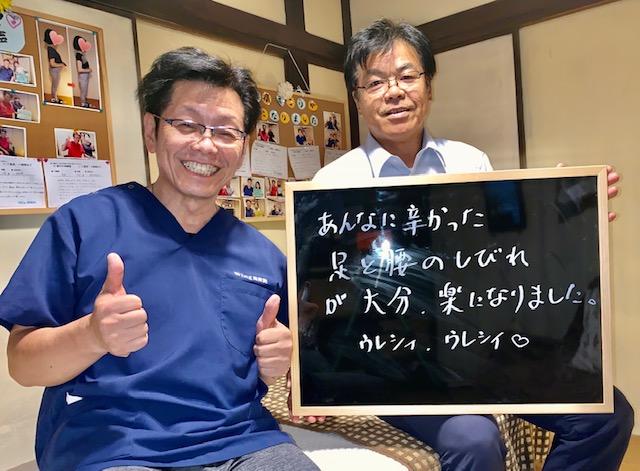 あんなに辛かった
足と腰のしびれ
が大分、楽になりました。
ウレシイ、ウレシイ♡